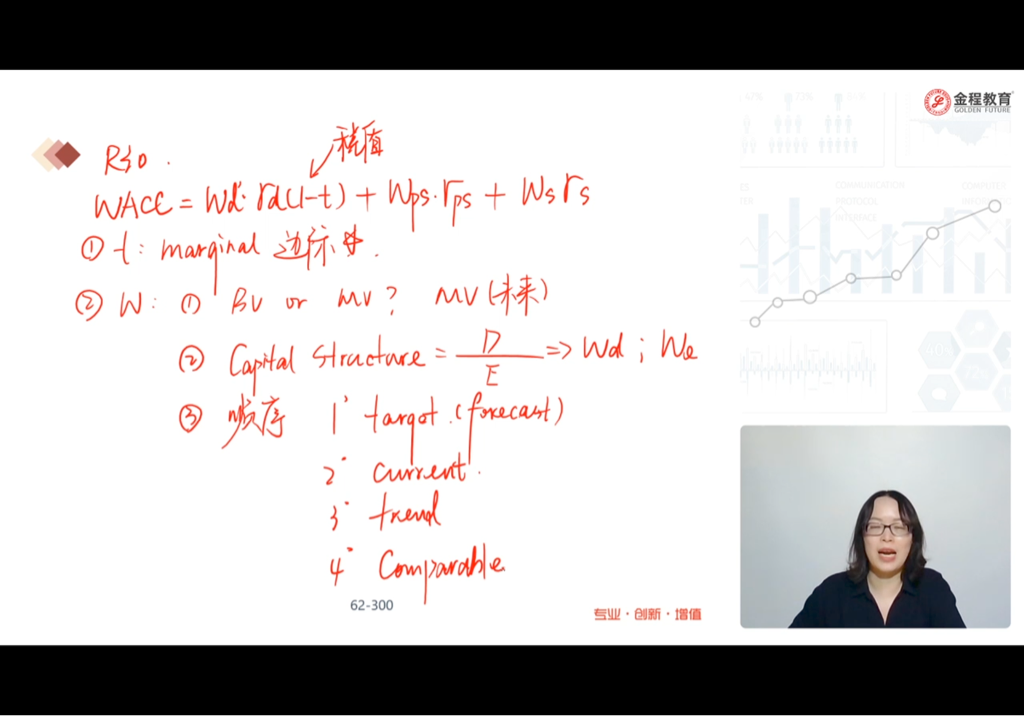 金程教育
GOLDEN FUTURE
R30.
税盾
WACC = Wd·rd(1-t) + Wps·rps + Wsrs
① t: marginal 边际
② W: ① BV or MV? MV (未来)
② Capital structure = D/E => Wd; We
③ 顺序 1° target. (forecast)
2° current.
3° trend
4° Comparable
62-300
专业·创新·增值